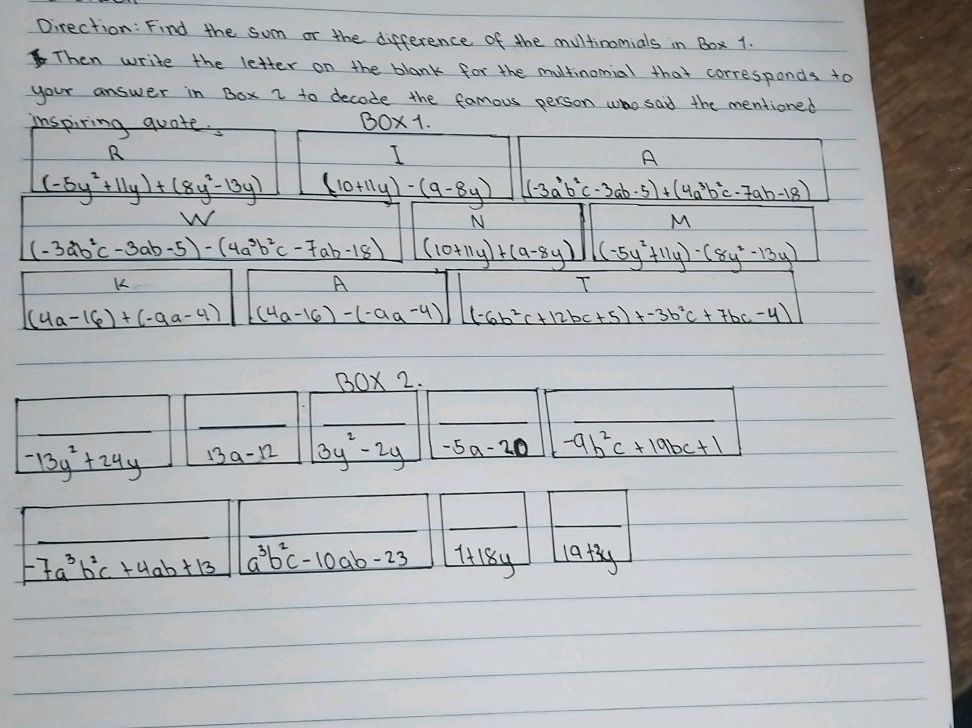 Direction: Find the sum or the difference of the multinomials in Box 1.
Then write the letter on the blank for the multinomial that corresponds to
your answer in Box 2 to decode the famous person who said the mentioned
inspiring quote.
BOX 1.
R I A
(-5y²+11y)+(8y²-13y) (10+11y)-(9-8y) (-3a³b²c-3ab-5)+(4a³b²c-7ab-18)
W N M
(-3a³b²c-3ab-5)-(4a³b²c-7ab-18) (10+11y)+(9-8y) (-5y²+11y)-(8y²-13y)
K A T
(4a-16)+(-9a-4) (4a-16)-(-9a-4) (-6b²c+12bc+5)+-3b²c+7bc-4)
BOX 2.
-13y²+24y 13a-12 3y²-2y -5a-20 -9b²c+19bc+1
-7a³b²c+4ab+13 a³b²c-10ab-23 1+18y 19+3y